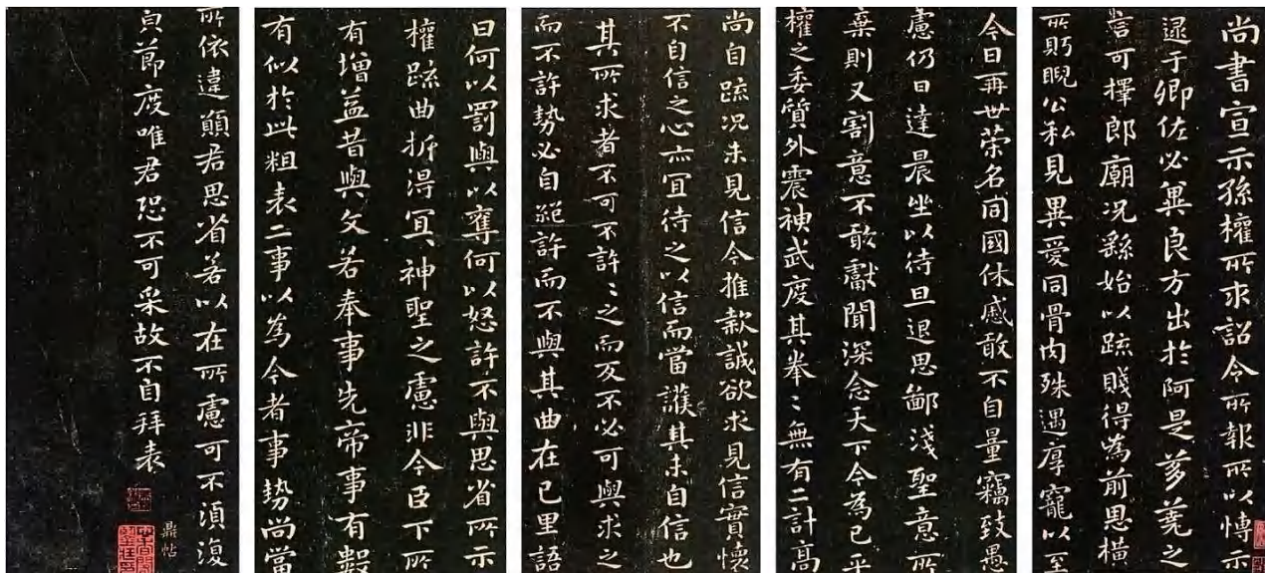 尚書宣示孫權所求詔令所報所以博示
逮于卿佐必冀良方出於阿是芻蕘之
言可擇郎廟況繇始以疏賤得為前思橫
所眄睨公私見異愛同骨肉殊遇厚寵以至
今日再世榮名同國休慼敢不自量竊致愚
慮仍日達晨坐以待旦退思鄙淺聖意所
棄則又割意不敢獻聞深念天下今為已平
權之委質外震神武度其拳〻無有二計高
尚自疏況未見信今推款誠欲求見信實懷
不自信之心亦宜待之以信而當護其未自信也
其所求者不可不許〻之而反不必可與求之
而不許勢必自絕許而不與其曲在已里語
曰何以罰與以奪何以怒許不與思省所示
權疏曲折得宜神聖之慮非今臣下所
有增益昔與文若奉事先帝事有數
有似於此粗表二事以為今者事勢尚當
所依違願君思省若以在所慮可不須復
貞節度唯君恐不可采故不自拜表
鼎帖